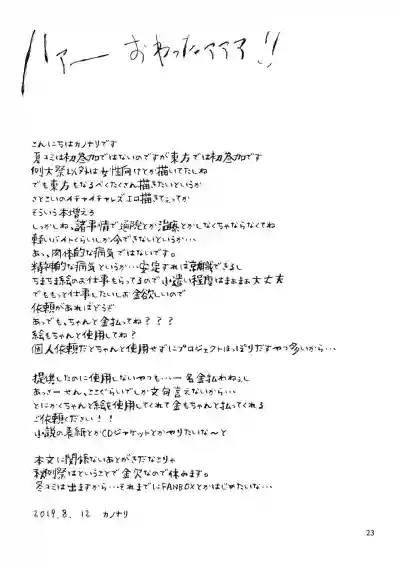 ハァー おわったァァァ!!
こんにちはカノナリです
夏コミは初参加ではないのですが東方では初参加です
例大祭以外は女性向けとか描いてたしね
でも東方もなるべくたくさん描きたいというか
さとこいのイチャイチャレズエロ描きてぇってか
そういう本増えろ
しっかしね、諸事情で通院とか治療とかしなくちゃならなくてね
軽いバイトくらいしか今できないというか…
あっ、肉体的な病気ではないです。
精神的な病気というか…安定すれば就職できるし
ちまちま絵のお仕事もらってるので小遣い程度はまぁまぁ大丈夫
でももっと仕事したいしお金欲しいので
依頼があればどうぞ
あっでも、ちゃんと金払ってね???
絵もちゃんと使用してね?
個人依頼だとちゃんと使用せずにプロジェクトほっぽりだすやつ多いから…
提供したのに使用しないやつも…一名金払わねぇし
あっさーせん、ここぐらいでしか文句言えないから…
とにかくちゃんと絵を使用してくれて金もちゃんと払ってくれる
ご依頼ください!!
小説の表紙とかCDジャケットとかやりたいな〜と
本文に関係ないあとがきだなこりゃ
秋例祭はということで金欠なので休みます。
冬コミは出ますから…それまでにFANBOXとかはじめたいな…
2019.8.12 カノナリ
23